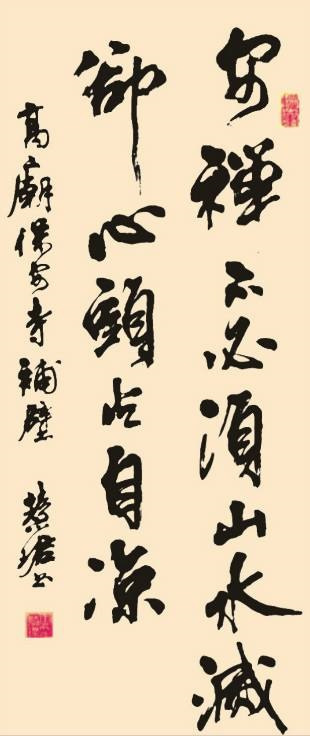 安禪不必須山水滅
卻心頭火自凉
高廟保安寺補壁 慧珺书